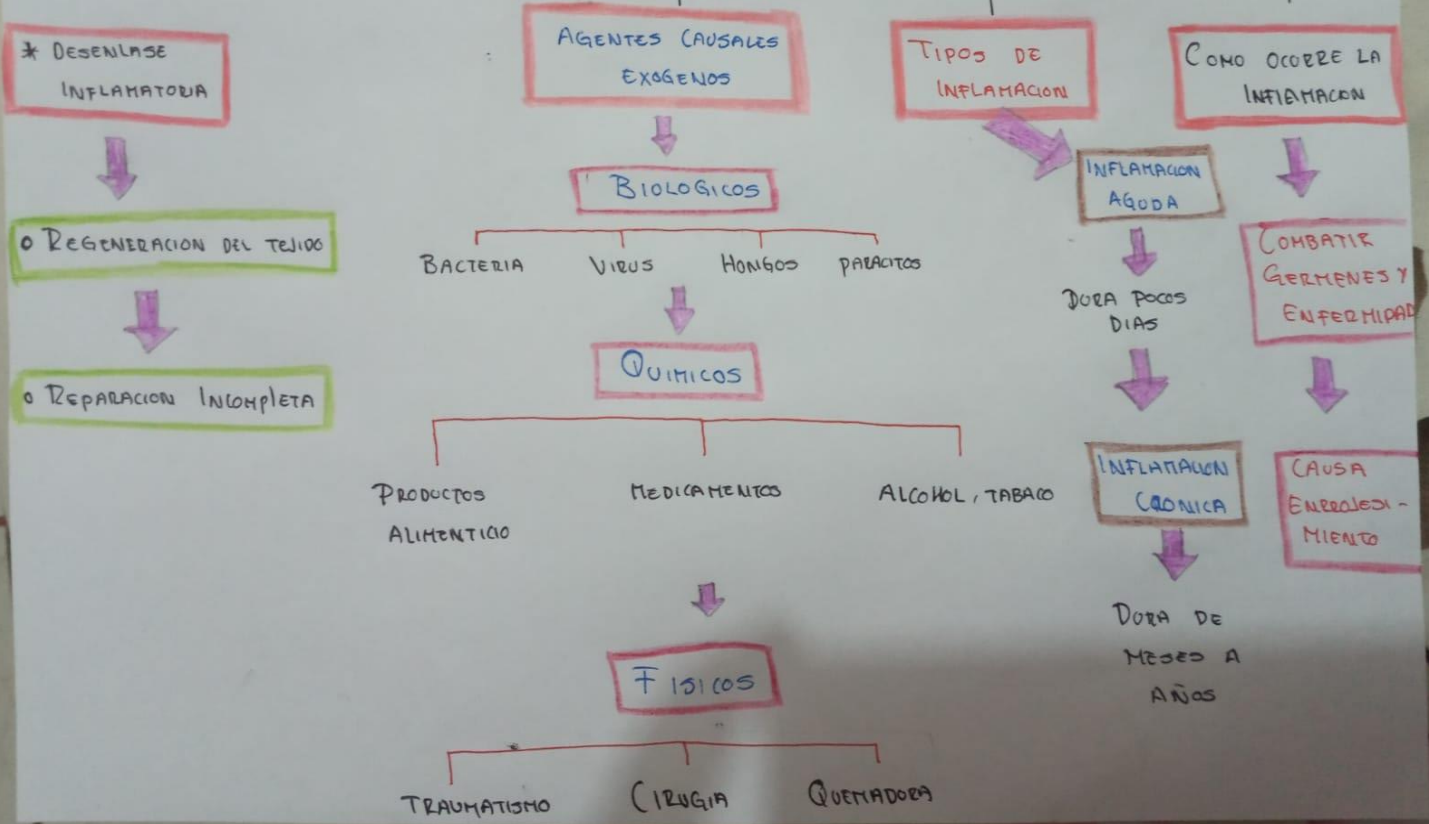 * DESENLASE
INFLAMATORIA
o REGENERACION DEL TEJIDO
o REPARACION INCOMPLETA
AGENTES CAUSALES
EXOGENOS
BIOLOGICOS
BACTERIA VIRUS HONGOS PARACITOS
QUIMICOS
PRODUCTOS
ALIMENTICIO
MEDICAMENTOS
ALCOHOL, TABACO
FISICOS
TRAUMATISMO CIRUGIA QUEMADURA
TIPOS DE
INFLAMACION
INFLAMACION
AGUDA
DURA POCOS
DIAS
INFLAMACION
CRONICA
DURA DE
MESES A
AÑOS
COMO OCORRE LA
INFLAMACION
COMBATIR
GERMENES Y
ENFERMIDAD
CAUSA
ENRROJESI-
MIENTO